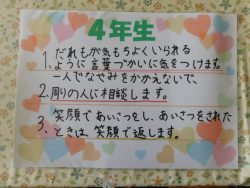 4年生
1、だれもが気もちよくいられる
ように言葉づかいに気をつけます。
一人でなやみをかかえないで、
2、周りの人に相談します。
3、笑顔であいさつをし、あいさつをされた
ときは、笑顔で返します。